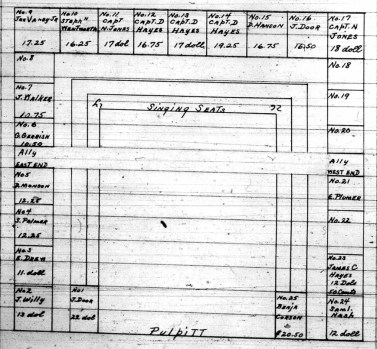 No. 9
Jos Varney Jr
17.25
No 10
Steph n
Wentworth
16.25
No. 11
Capt
N. Jones
17 dol
No. 12
Capt. D
Hayes
16.75
No. 13
Capt. D
Hayes
17 doll
No. 14
Capt. D
Hayes
19.25
No. 15
D. Hanson
16.75
No. 16
J. Door
16.50
No. 17
Capt. N
Jones
18 doll
No. 8
No. 18
No. 7
J. Walker
10.75
No. 19
Singing Seats
No. 6
G. Gerrish
10.50
No. 20
Ally
East End
Ally
West End
No 5
D. Monson
12.25
No. 21
E. Plumer
No 4
S. Palmer
12.25
No. 22
No. 3
E. Drew
11. doll
No. 23
James C
Hayes
12 Dols
50 Cents
No. 2
J. Willy
13 dol
No 1
J. Door
22 dol
No. 25
Benja
Corson
$20.50
No. 24
Saml.
Nash
12 doll
Pulpitt